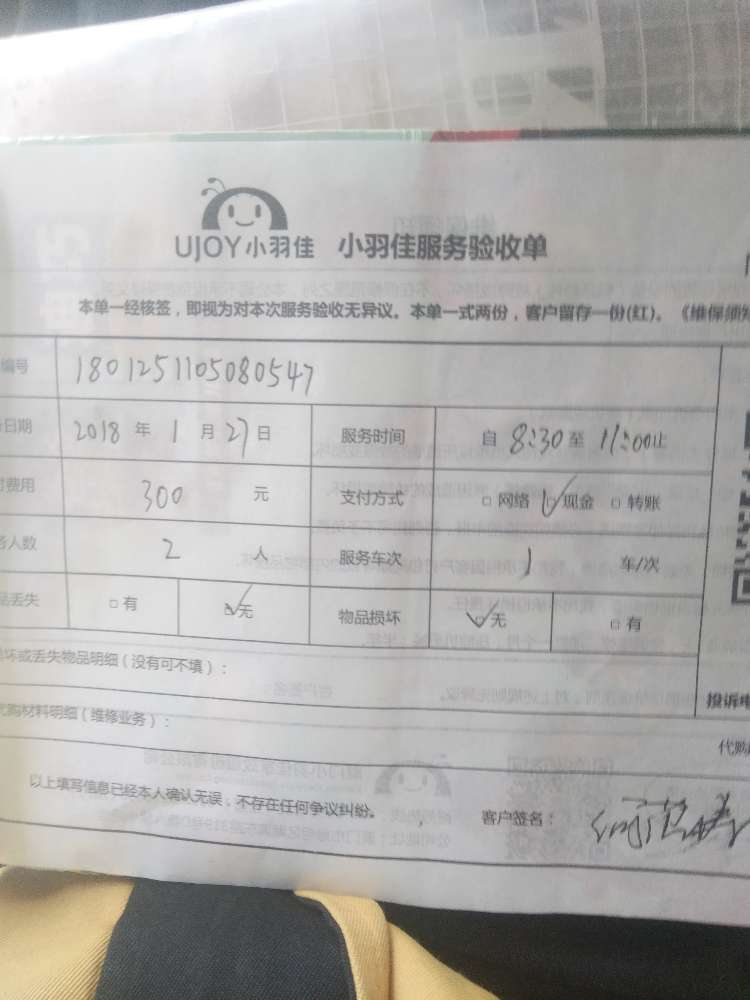 UJOY小羽佳 小羽佳服务验收单
本单一经核签，即视为对本次服务验收无异议。本单一式两份，客户留存一份(红)。《维保须知
编号 1801251105080547
日期 2018 年 1 月 27 日 服务时间 自 8:30 至 11:00 止
费用 300 元 支付方式 □ 网络 ☑ 现金 □ 转账
人数 2 人 服务车次 1 车/次
品丢失 □ 有 ☑ 无 物品损坏 ☑ 无 □ 有
坏或丢失物品明细（没有可不填）：
投诉电
代购材料明细（维修业务）：
代购
以上填写信息已经本人确认无误，不存在任何争议纠纷。
客户签名：